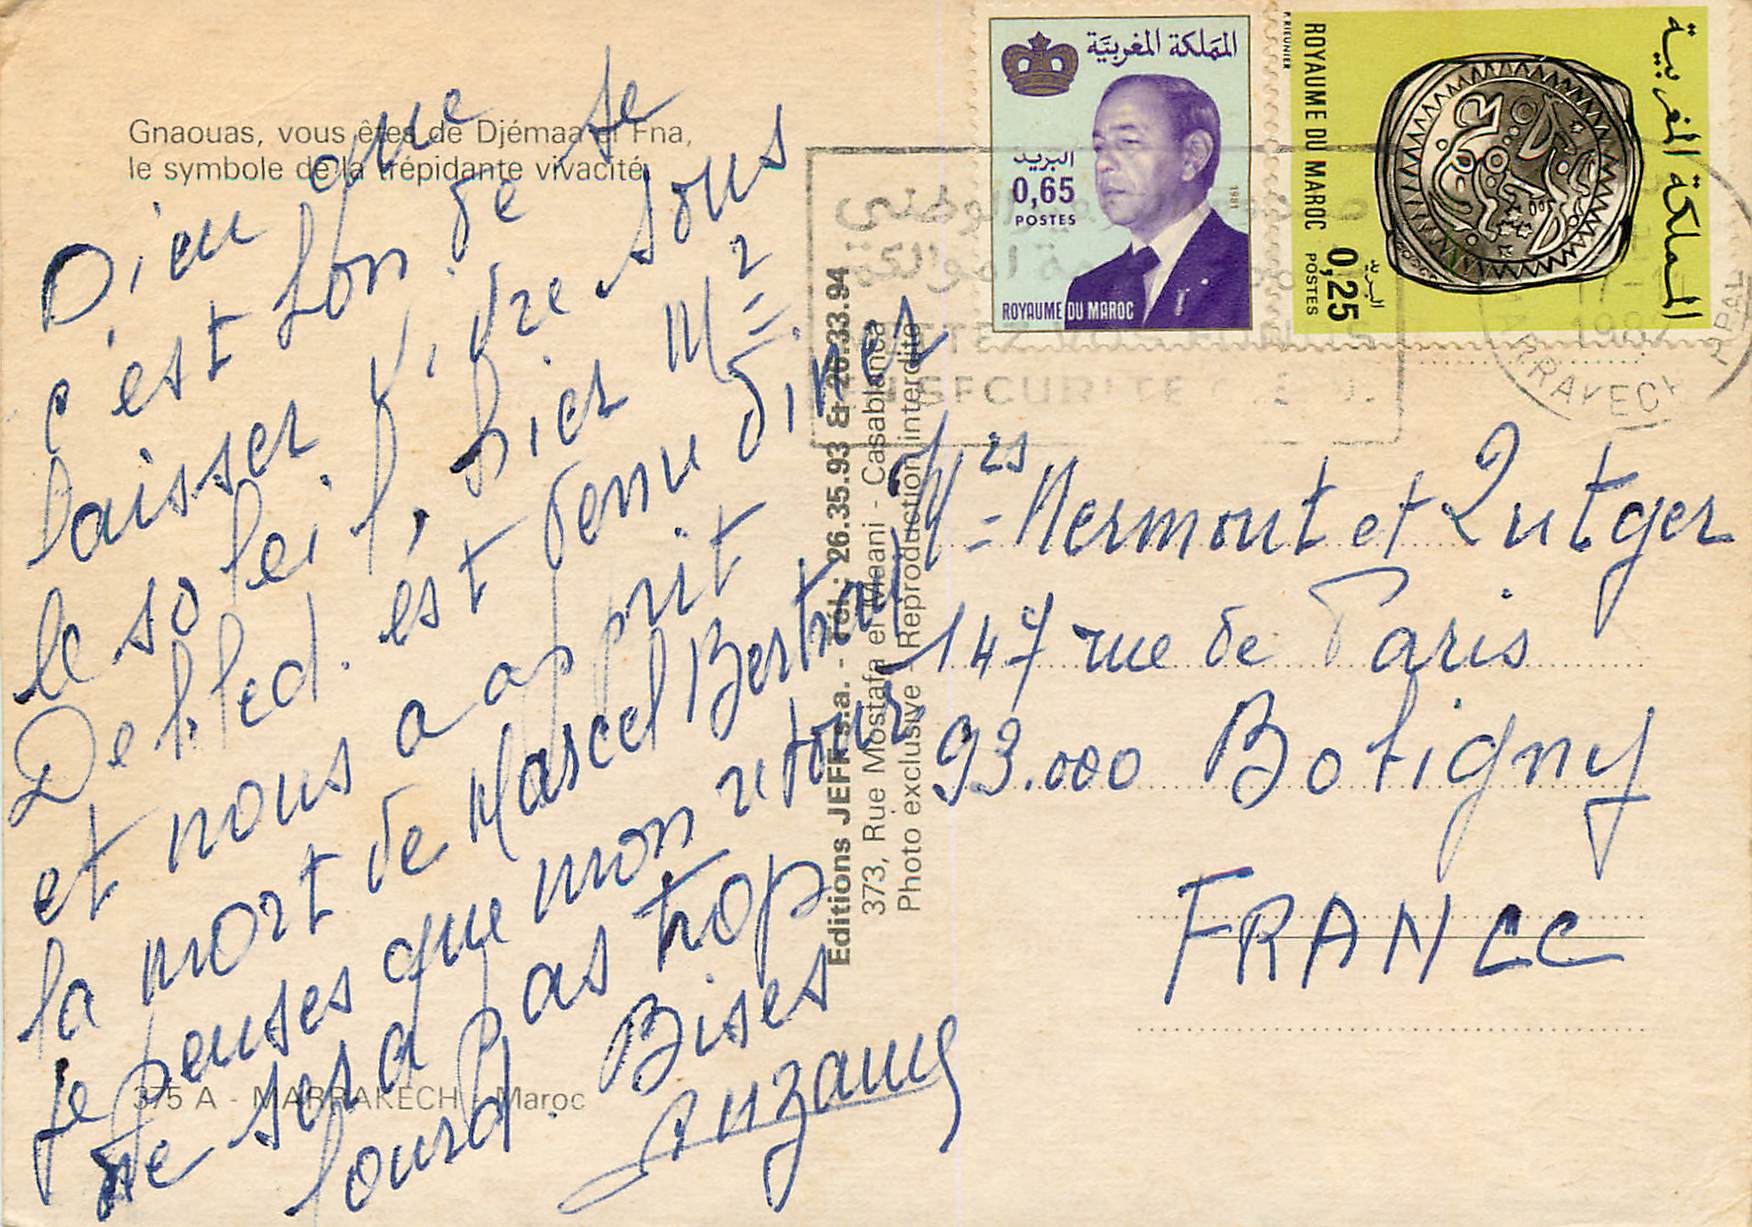 Gnaouas, vous êtes de Djémaa el Fna,
le symbole de la trépidante vivacité.
Dieu que
c'est bon de se
laisser vivre sous
le soleil, hier M²
Delpled. est venu diner
et nous a apprit
la mort de Marcel Bertrau
je penses que mon retour
ne sera pas trop
lourd. Bises
Suzanne
375 A - MARRAKECH - Maroc
Editions JEFF s.a. - Tél.: 26.35.93 & 26.33.94
373, Rue Mostafa el Maani - Casablanca
Photo exclusive - Reproduction interdite
المملكة المغربية
البريد
0,65
POSTES
1981
ROYAUME DU MAROC
المملكة المغربية
البريد
0,25
POSTES
ROYAUME DU MAROC
P. RIEUNIER
EN SECURITE
17-
1982
MARRAKECH PPAL
Mrs Nermont et Lutger
147 rue de Paris
93.000 Bobigny
FRANCE